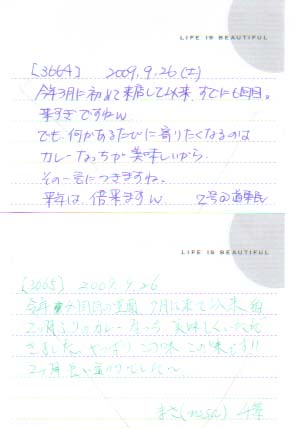 LIFE IS BEAUTIFUL
[3664] 2009.9.26(土)
今年3月に初めて来店して以来、すでに6回目。
来すぎですねw
でも、何かあるたびに寄りたくなるのは
カレーなっちが美味しいから。
その一言につきますね。
来年は、倍来ますw 2号@道民
LIFE IS BEAUTIFUL
[3665] 2009.9.26
今年 回目の 7月に来て以来 
2ヶ月ぶりのカレーなっち 美味しくいただ
きました。やっぱりこの味この味です!!
2ヶ月 でした〜
まさ(masa)